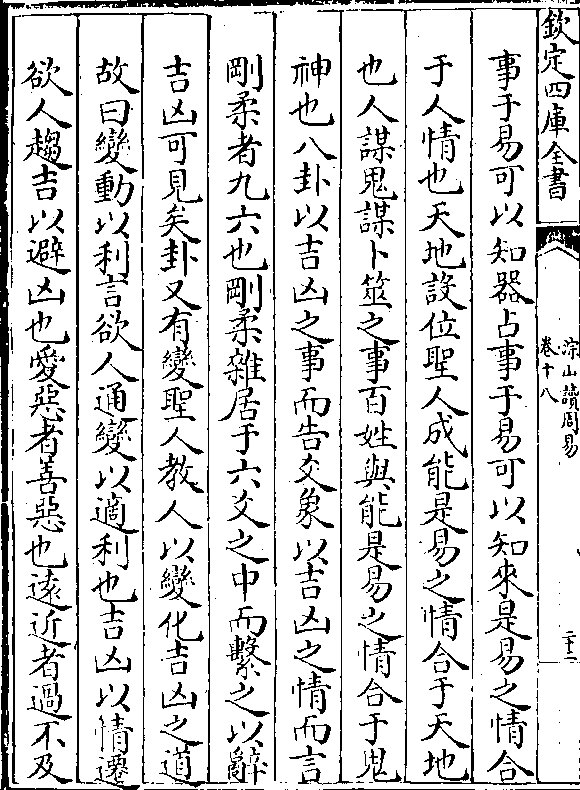 欽定四庫全書
淙山讀周易
卷十八
二十二
事于易可以知器占事于易可以知來是易之情合
于人情也天地設位聖人成能是易之情合于天地
也人謀鬼謀卜筮之事百姓與能是易之情合于鬼
神也八卦以吉凶之事而告爻象以吉凶之情而言
剛柔者九六也剛柔雜居于六爻之中而繫之以辭
吉凶可見矣卦又有變聖人教人以變化吉凶之道
故曰變動以利言欲人通變以適利也吉凶以情遷
欲人趨吉以避凶也愛惡者善惡也逺近者過不及